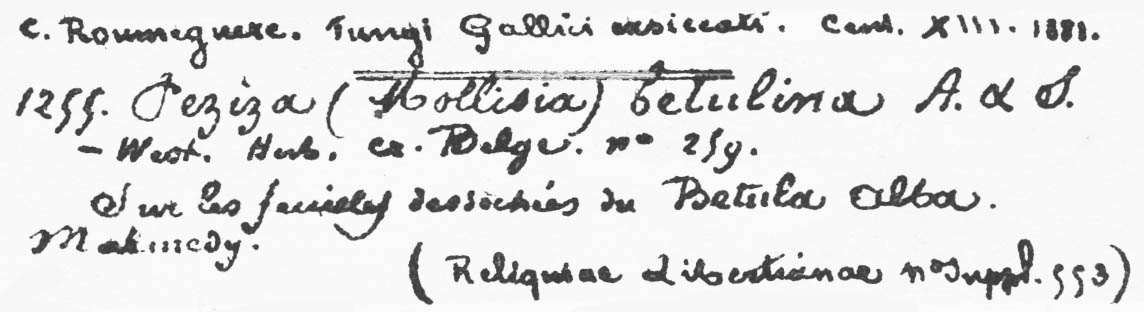 C. Roumeguere. Fungi Gallici exsiccati. Cent. XIII. 1881.
1255. Peziza (Mollisia) betulina A. & S.
- West. Herb. cr. Belge. nº 259.
Sur les feuilles dessechiés du Betula alba.
Malmedy.
(Reliquiae Libertianae nº Suppl. 553)